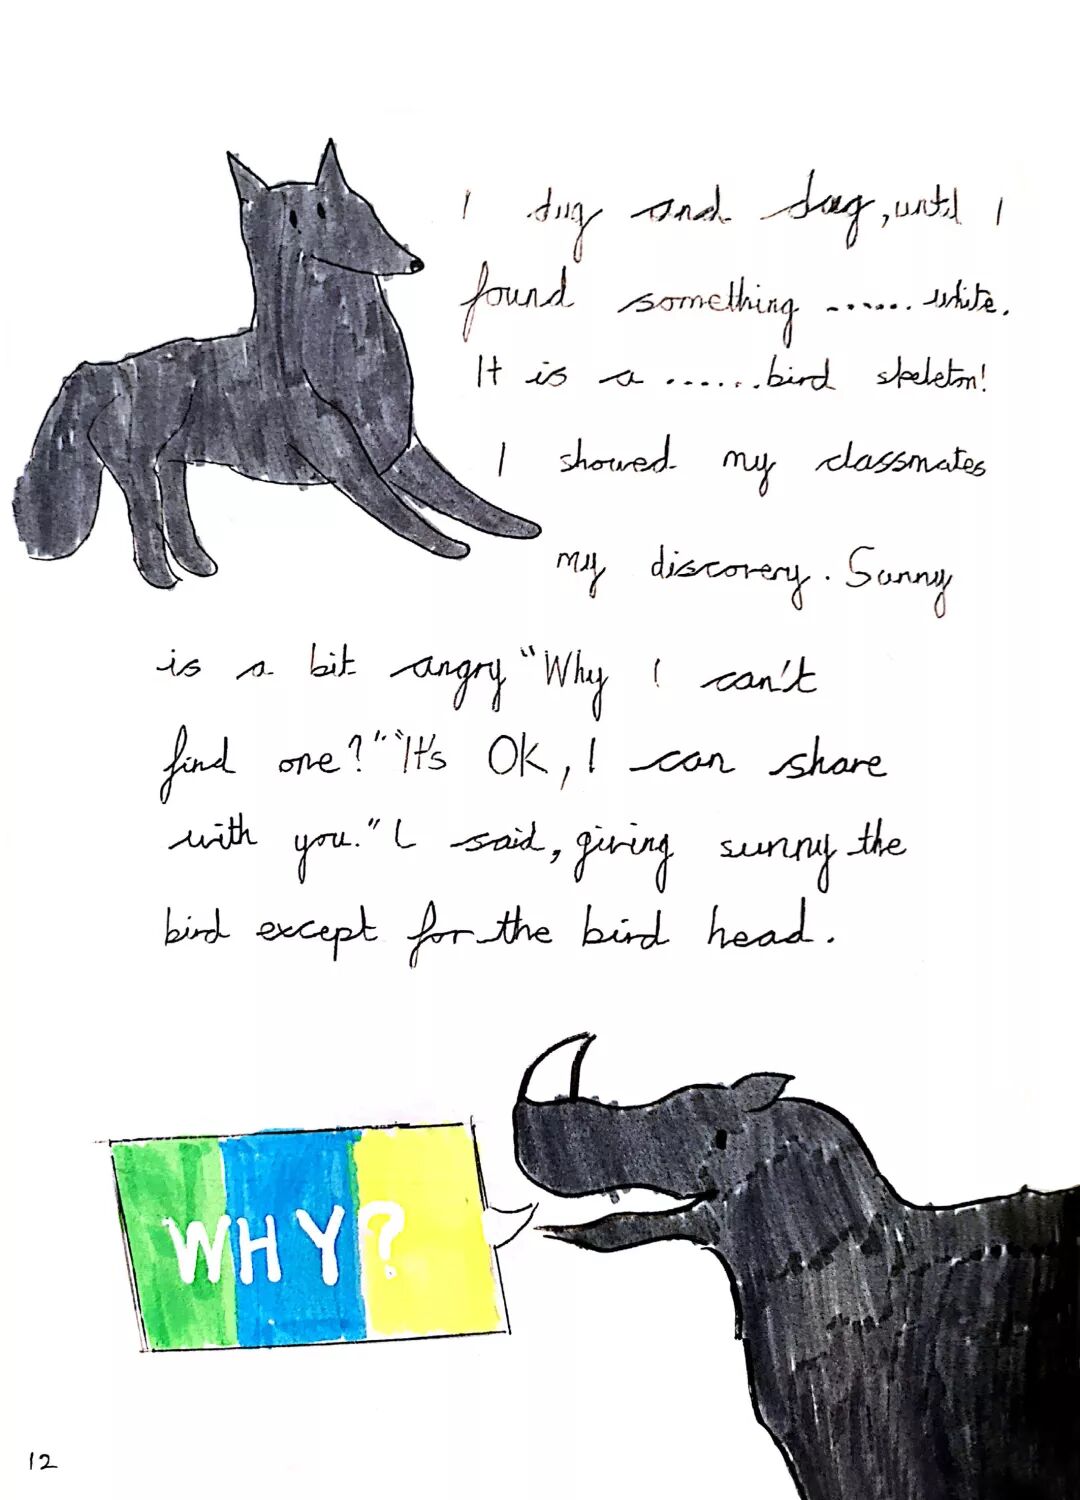 I dug and dug, until I
found something ...... white.
It is a ...... bird skeleton!
I showed my classmates
my discovery. Sunny
is a bit angry "Why I can't
find one?" "It's OK, I can share
with you." I said, giving sunny the
bird except for the bird head.
WHY?
12